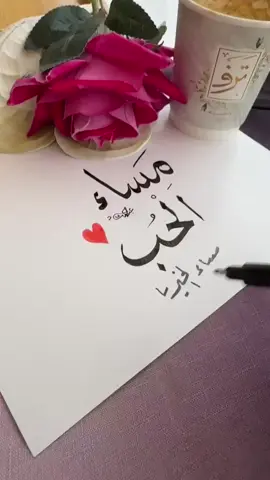 مَسَاء
الحُبِّ
مساء الخير يا